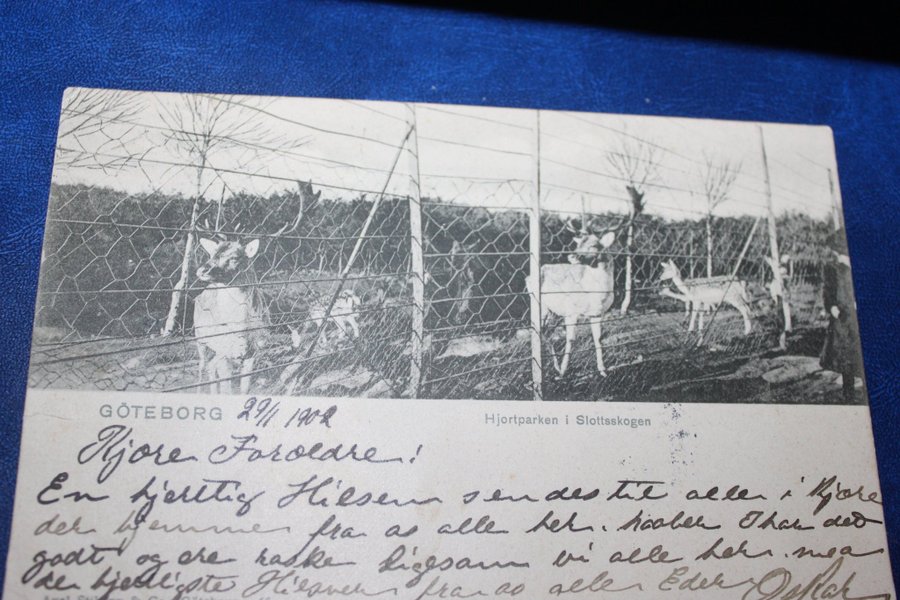 GÖTEBORG 29/1 1902 Hjortparken i Slottsskogen
Kjære Forældre!
En hjertlig Hilsen sendes til aller i Kjære
der hjemme fra os alle her. haaber I har det
godt og ere raske ligesaa vi alle her. mea
den hjertligste Hilsener fra os aller Eder Oskar